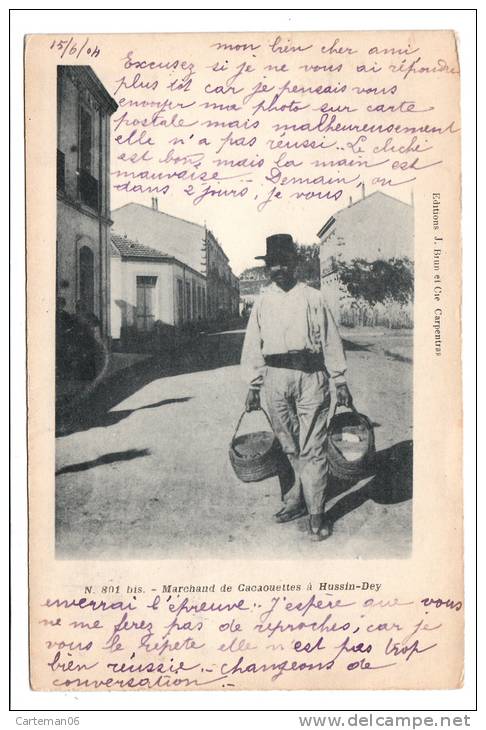 15/6/04
mon bien cher ami
Excusez si je ne vous ai répondre
plus tôt car je pensais vous
envoyer ma photo sur carte
postale mais malheureusement
elle n'a pas réussi. Le cliché
est bon, mais la main est
mauvaise. Demain, ou
dans 2 jours, je vous
Editions J. Brun et Cie Carpentras
N. 801 bis. - Marchand de Cacaouettes à Hussin-Dey
enverrai l'épreuve. J'espère que vous
ne me ferez pas de reproches, car je
vous le répète elle n'est pas trop
bien réussie. - changeons de
conversation. -
Carteman06
http://www.delcampe.net